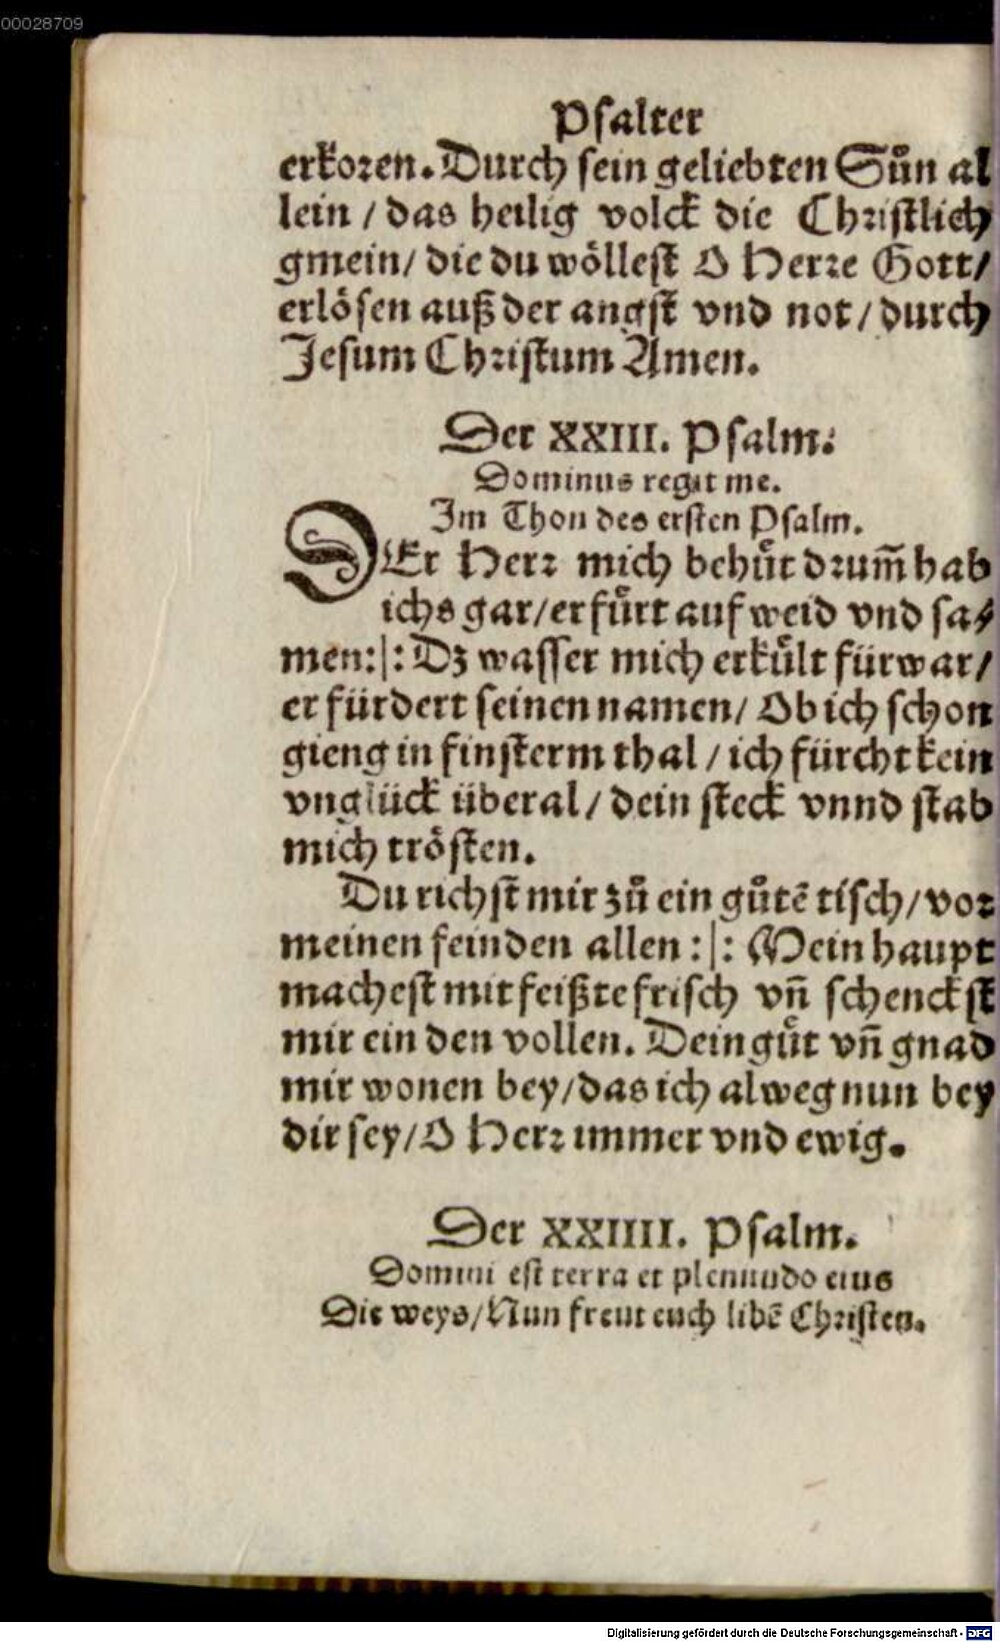 00028709
Psalter
erkoren. Durch sein geliebten Sůn al
lein / das heilig volck die Christlich
gmein / die du wöllest O Herre Gott /
erlösen auß der angst vnd not / durch
Jesum Christum Amen.
Der XXIII. Psalm.
Dominus regit me.
Im Thon des ersten Psalm.
DEr Herr mich behuͤt drum̄ hab
ichs gar / er fuͤrt auf weid vnd sa⸗
men :|: Dz wasser mich erkuͤlt fürwar /
er fürdert seinen namen / Ob ich schon
gieng in finsterm thal / ich fürcht kein
vnglück überal / dein steck vnnd stab
mich trösten.
Du richst mir zů ein gůtē tisch / vor
meinen feinden allen :|: Mein haupt
machest mit feißte frisch vn̄ schenckst
mir ein den vollen. Dein guͤt vn̄ gnad
mir wonen bey / das ich alweg nun bey
dir sey / O Herr immer vnd ewig.
Der XXIIII. Psalm.
Domini est terra et plenitudo eius
Die weys / Nun freut euch libē Christen.
Digitalisierung gefördert durch die Deutsche Forschungsgemeinschaft - DFG